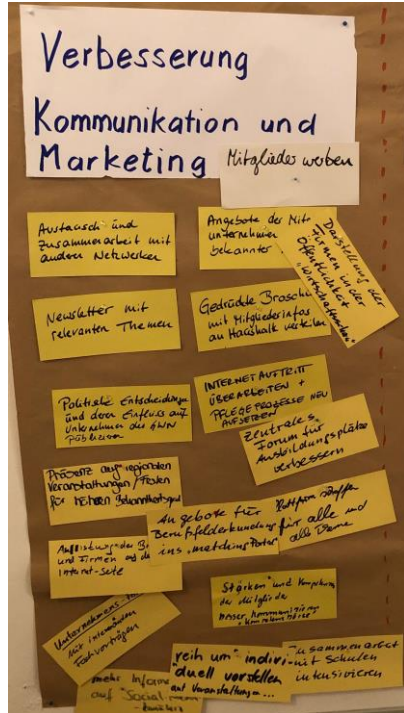 Verbesserung
Kommunikation und
Marketing
Mitglieder werben
Austausch und
Zusammenarbeit mit
anderen Netzwerken
Angebote der
unternehmen
bekannter
Darstellung der
Firmen in der
Öffentlichkeit
Newsletter mit
relevanten Themen
Gedruckte
mit Mitgliederinfos
an Haushalte verteilen
Politische Entscheidungen
und deren Einfluss auf
Unternehmen des GWN
Publizieren
INTERNETAUFTRITT
ÜBERARBEITEN +
PFLEGEPROZESSE NEU
AUFSETZEN
Zentrales
Forum für
Ausbildungsplätze
verbessern
Präsenz auf regionalen
Veranstaltungen/Festen
für höheren
Angebote für
Berufsfelderkundung
ins
Plattform schaffen
für alle und
alle
und Firmen auf
Internet-Seite
Stärken und
der Mitglieder
besser kommunizieren
Unternehmens-
mit
Fachvorträgen
"reih um" indivi-
duell vorstellen
auf Veranstaltungen...
Zusammenarbeit
mit Schulen
intensivieren
mehr
auf "Social